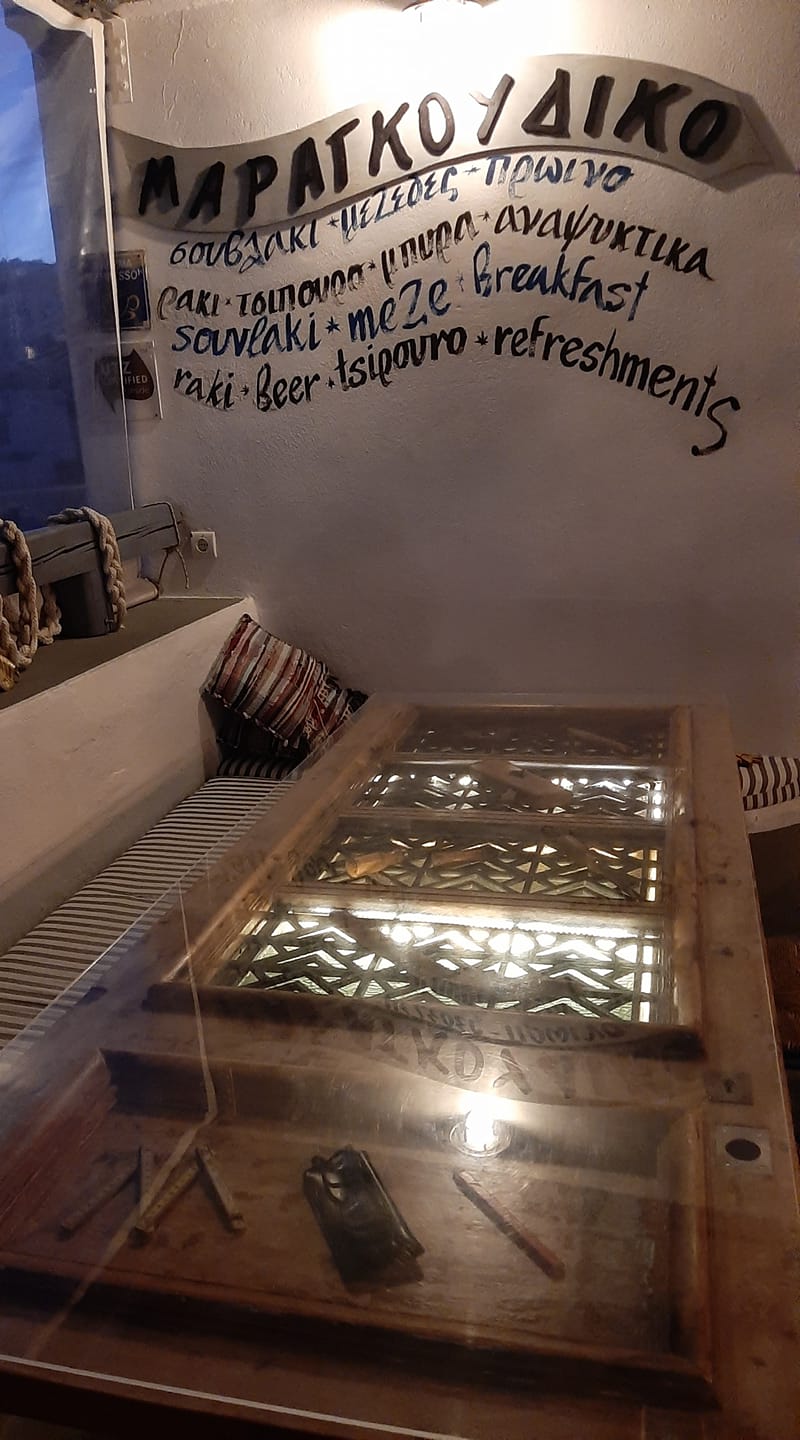 ΜΑΡΑΓΚΟΥΔΙΚΟ
σουβλακι * μεζεδες * πρωινο
ρακι * τσιπουρο * μπυρα * αναψυκτικα
souvlaki * meze * Breakfast
raki * Beer * tsipouro * refreshments